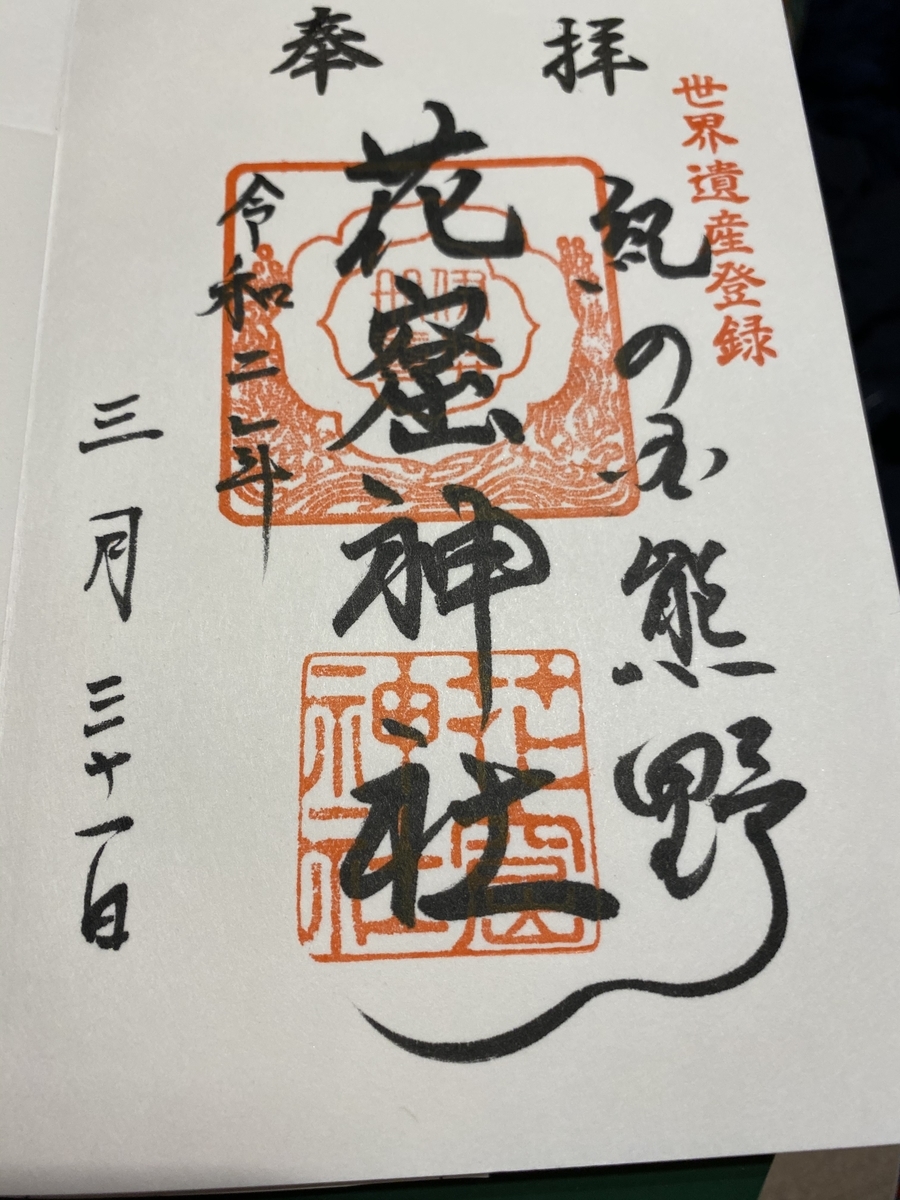 奉拝
世界遺産登録
紀の国熊野
花窟神社
令和二年
三月三十一日
花窟神社